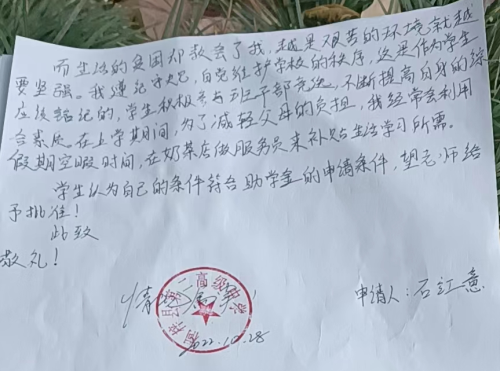 而生活的贫困却教会了我,越是艰苦的环境就越
要坚强。我遵记守纪,自觉维护学校的秩序,这是作为学生
应该铭记的,学生积极参与班干部竞选,不断提高自身的综
合素质。在上学期间,为了减轻父母的负担,我经常会利用
假期空暇时间,在奶茶店做服务员来补贴生活学习所需。
学生认为自己的条件符合助学金的申请条件,望老师给
予批准!
此致
敬礼!
情况属实!
第二高级中学
申请人:石江意
2022.10.28